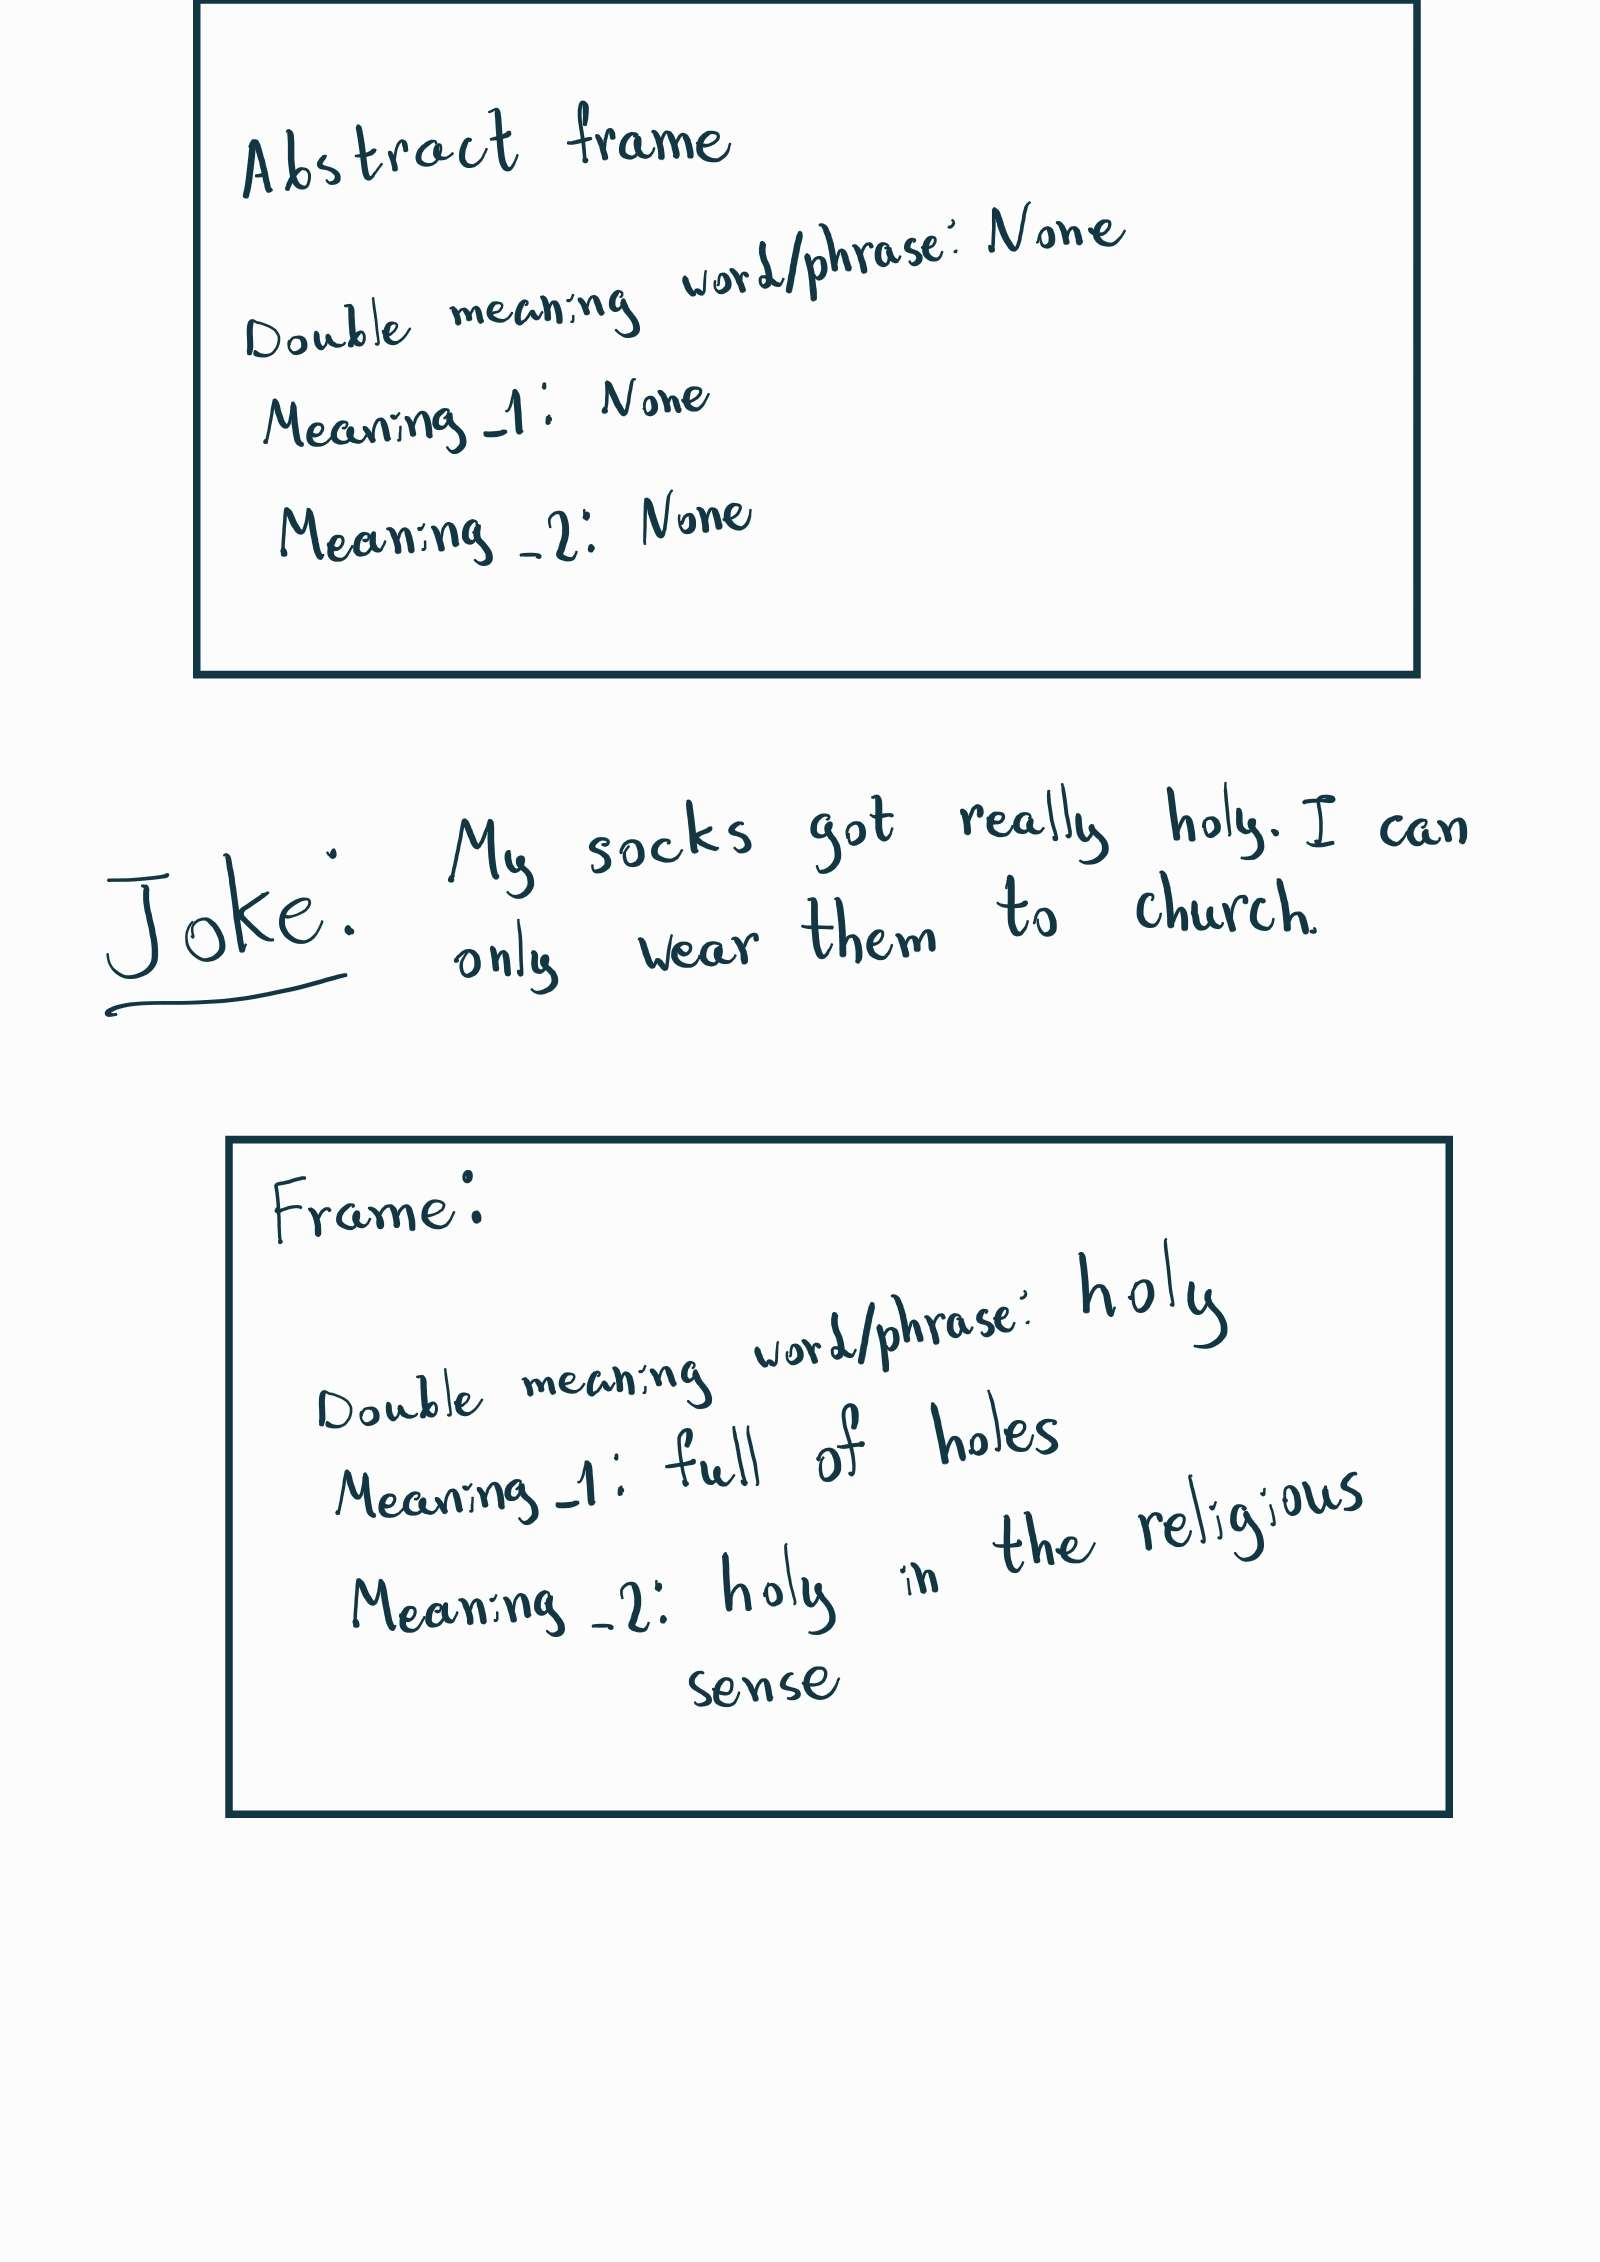 Abstract frame
Double meaning word/phrase: None
Meaning_1: None
Meaning_2: None
Joke: My socks got really holy. I can
only wear them to church.
Frame:
Double meaning word/phrase: holy
Meaning_1: full of holes
Meaning_2: holy in the religious
sense